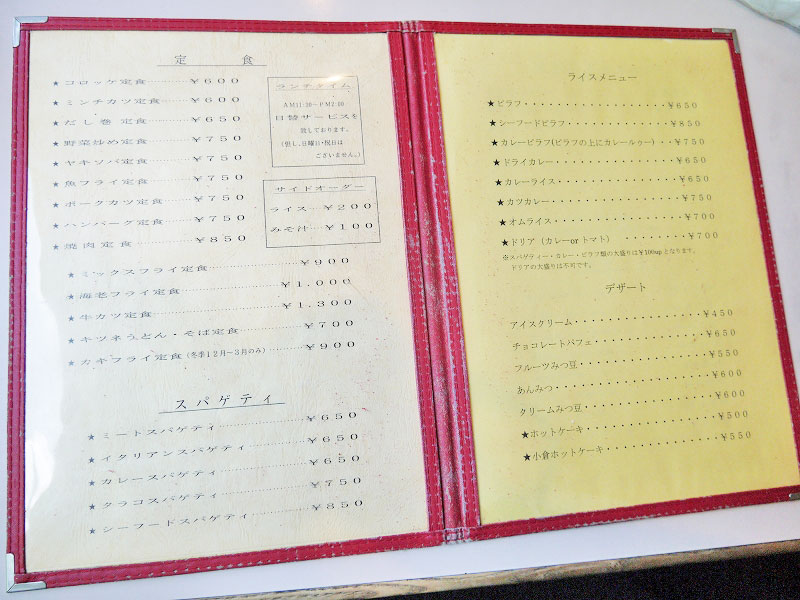 定 食
★コロッケ定食………¥600
★ミンチカツ定食………¥600
★だし巻 定食………¥650
★野菜炒め定食………¥750
★ヤキソバ定食………¥750
★魚フライ定食………¥750
★ポークカツ定食………¥750
★ハンバーグ定食………¥750
★焼肉定食………¥850
★ミックスフライ定食………¥900
★海老フライ定食………¥1.000
★牛カツ定食………¥1.300
★キツネうどん・そば定食………¥700
★カキフライ定食(冬季12月~3月のみ)………¥900
ランチタイム
AM11:30~PM2:00
日替サービスを
致しております。
(但し、日曜日・祝日は
ございません。)
サイドオーダー
ライス…¥200
みそ汁…¥100
スパゲティ
★ミートスパゲティ………¥650
★イタリアンスパゲティ………¥650
★カレースパゲティ………¥650
★タラコスパゲティ………¥750
★シーフードスパゲティ………¥850
ライスメニュー
★ピラフ・・・・・・・・・・¥650
★シーフードピラフ・・・・・・・・・・¥850
★カレーピラフ(ピラフの上にカレールゥー)・・¥750
★ドライカレー・・・・・・・・・・¥650
★カレーライス・・・・・・・・・・¥650
★カツカレー・・・・・・・・・・¥750
★オムライス・・・・・・・・・・¥700
★ドリア(カレーorトマト)・・・・・・・¥700
※スパゲティー・カレー・ピラフ類の大盛りは¥100upとなります。
ドリアの大盛りは不可です。
デザート
アイスクリーム・・・・・・・・・・¥450
チョコレートパフェ・・・・・・・・・・¥650
フルーツみつ豆・・・・・・・・・・¥550
あんみつ・・・・・・・・・・¥600
クリームみつ豆・・・・・・・・・・¥600
★ホットケーキ・・・・・・・・・・¥500
★小倉ホットケーキ・・・・・・・・・・¥550